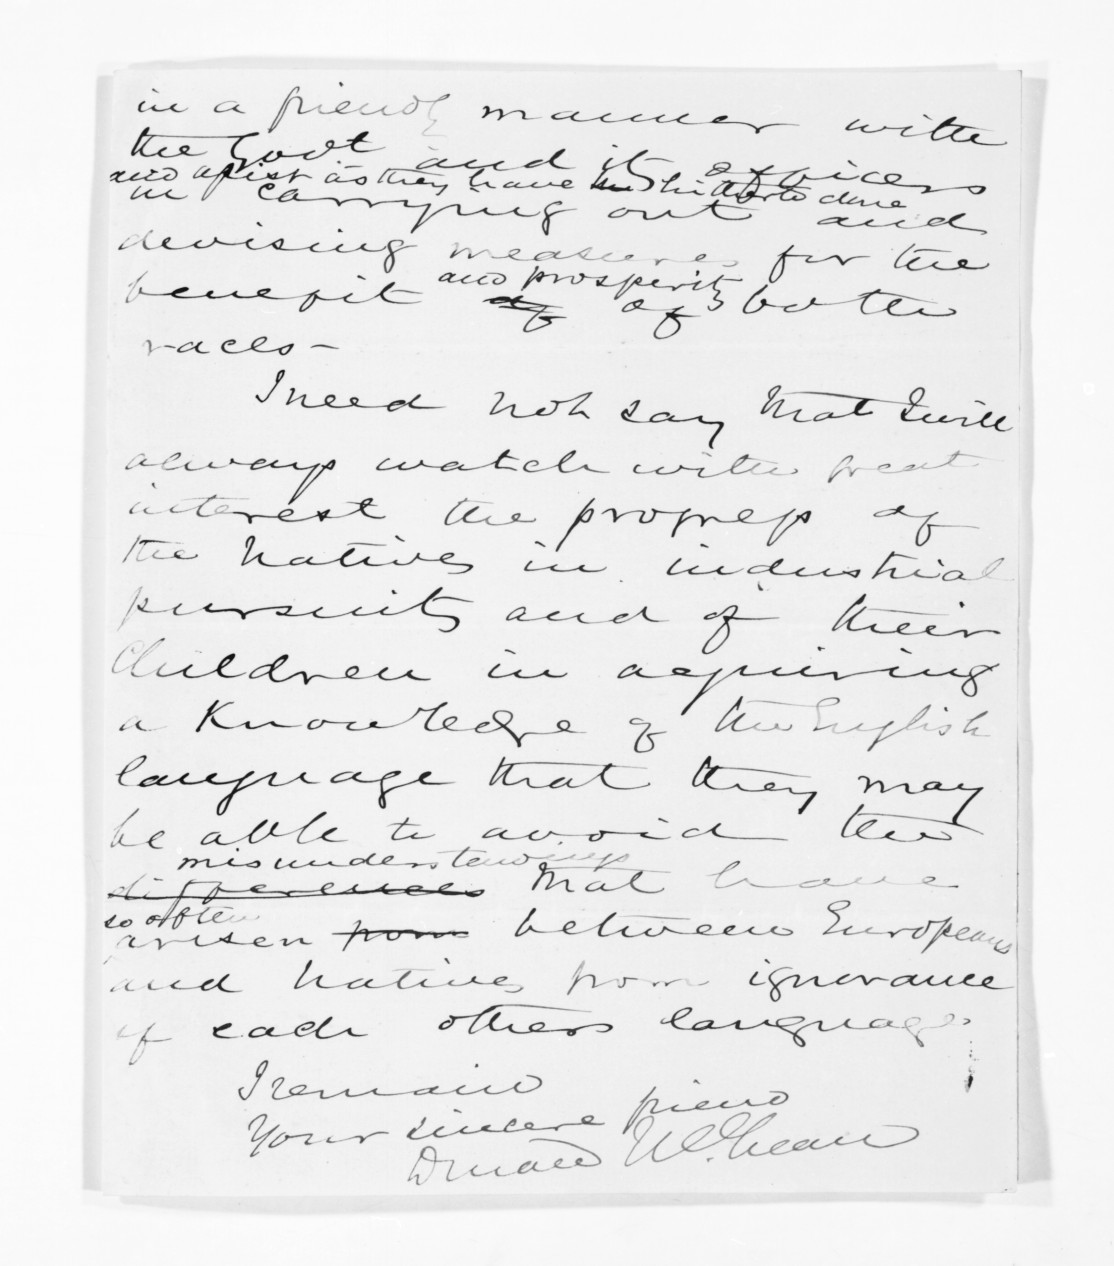 in a friendly manner with
the Govt and its officers
and assist as they have hitherto done
in carrying out and
devising measures for the
and prosperity
benefit of of both
races -
I need not say that I will
always watch with great
interest the progress of
the Natives in industrial
pursuits and of their
Children in acquiring
a Knowledge of the English
language that they may
be able to avoid the
misunderstandings
differences that have
so often
arisen from between Europeans
and Natives from ignorance
of each others language.
I remain
Your sincere friend
Donald McLean